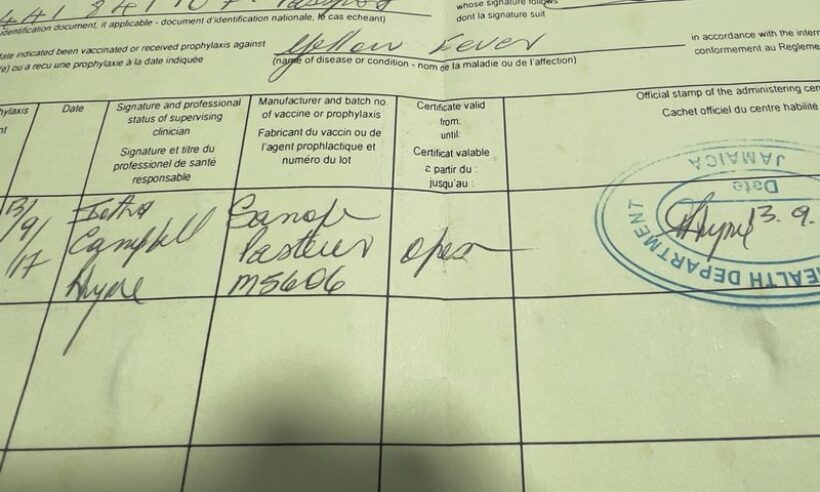 identification document, it applicable - document d'identification nationale, le cas echeant)
whose signature follows
dont la signature suit
date indicated been vaccinated or received prophylaxis against
Yellow Fever
in accordance with the intern
e) ou a recu une prophylaxie à la date indiquée
(name of disease or condition - nom de la maladie ou de l'affection)
conformement au Regleme
Date
Signature and professional
status of supervising
clinician
Signature et titre du
professionel de santé
responsable
Manufacturer and batch no.
of vaccine or prophylaxis
Fabricant du vaccin ou de
l'agent prophlactique et
numéro du lot
Certificate valid
from:
until:
Certificat valable
a partir du :
jusqu'au :
Official stamp of the administering cen
Cachet officiel du centre habilité
13/
/9/
/17
Campbell
Sanofi
Pasteur
M5606
open
HEALTH DEPARTMENT
JAMAICA
Date
13.9.